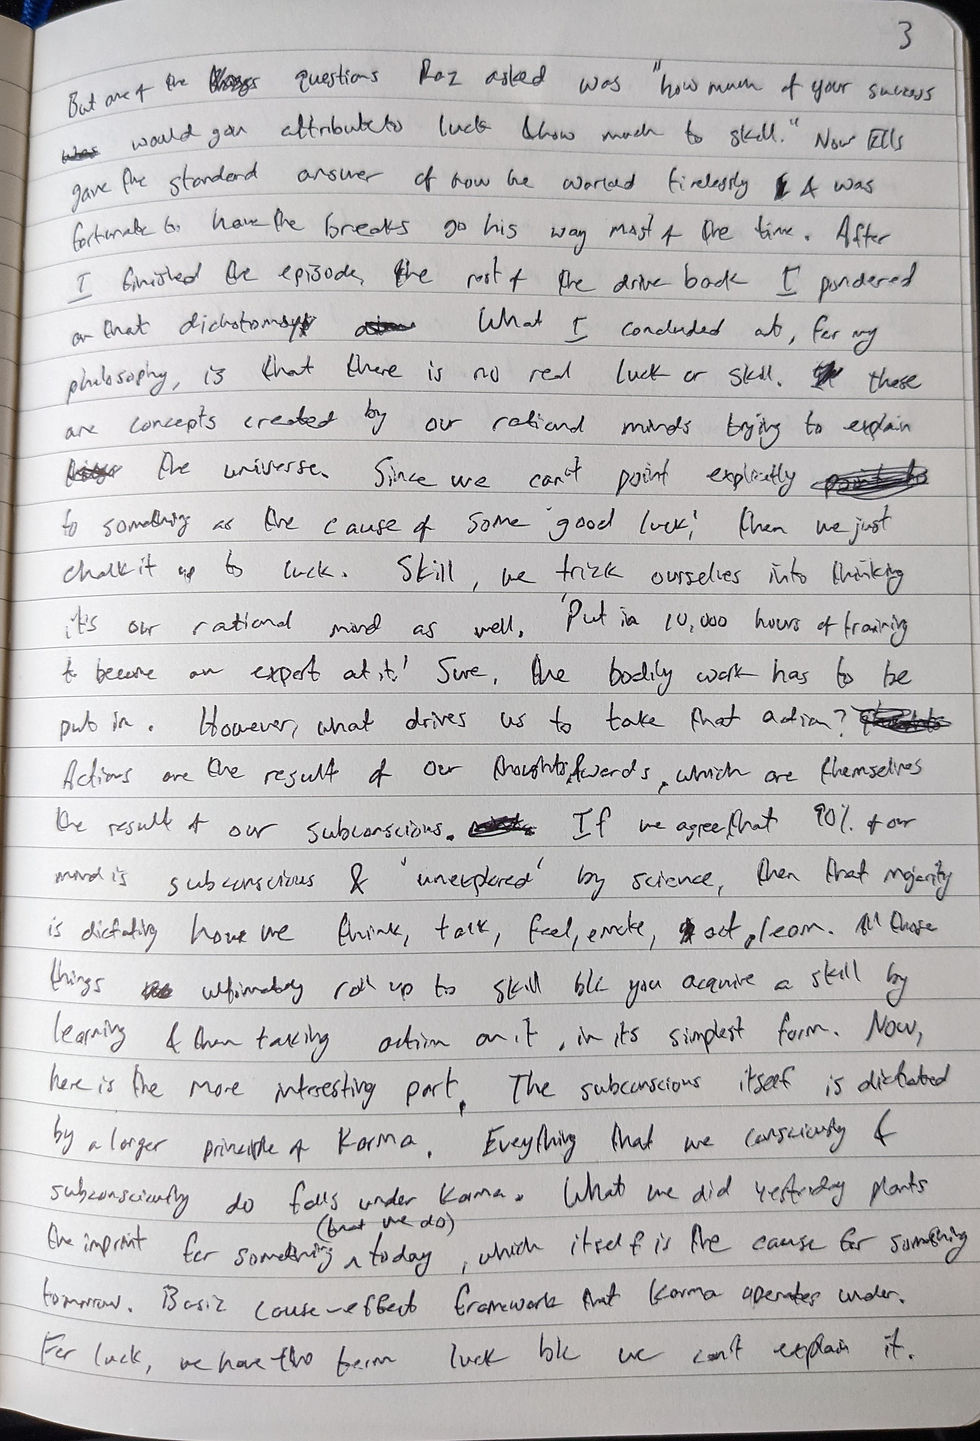 3
But one of the things questions Raz asked was "how much of your success
was would you attribute to luck & how much to skill." Now Ells
gave the standard answer of how he worked tirelessly & was
fortunate to have the breaks go his way most of the time. After
I finished the episode, the rest of the drive back I pondered
on that dichotomy. What I concluded at, for my
philosophy, is that there is no real luck or skill. these
are concepts created by our rational minds trying to explain
the universe. Since we can't point explicitly point to
to something as the cause of some 'good luck', then we just
chalk it up to luck. Skill, we trick ourselves into thinking
it's our rational mind as well. 'Put in 10,000 hours of training
to become an expert at it.' Sure, the bodily work has to be
put in. However, what drives us to take that action? Thoughts
Actions are the result of our thoughts & words, which are themselves
the result of our subconscious. If we agree that 90% of our
mind is subconscious & 'unexplored' by science, then that majority
is dictating how we think, talk, feel, emote, act, learn. All those
things ultimately roll up to skill b/c you acquire a skill by
learning & then taking action on it, in its simplest form. Now,
here is the more interesting part. The subconscious itself is dictated
by a larger principle of Karma. Everything that we consciously &
subconsciously do falls under Karma. What we did yesterday plants
the imprint for something (that we do) today, which itself is the cause for something
tomorrow. Basic cause-effect framework that Karma operates under.
For luck, we have the term luck b/c we can't explain it.